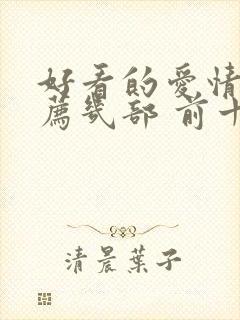 好看的愛情
薦幾部 前十
清晨葉子